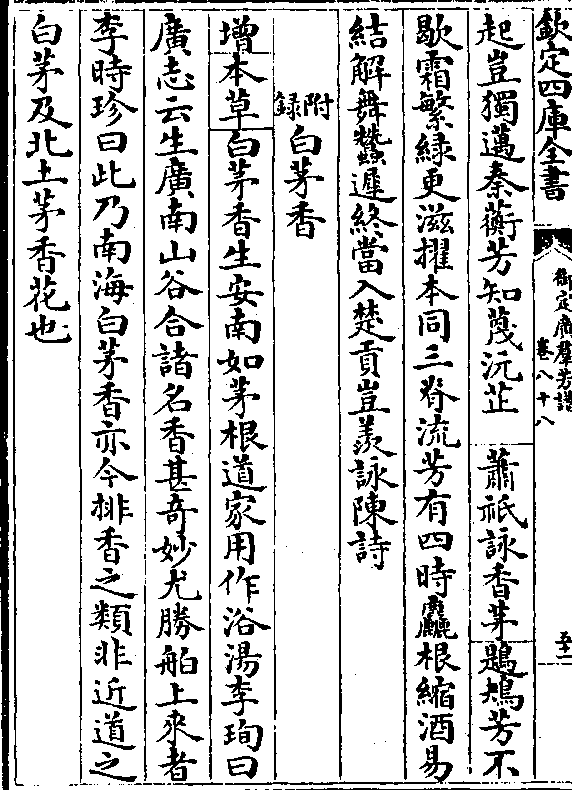 欽定四庫全書
御定廣羣芳譜
卷八十八
五十二
起豈獨邁秦蘅芳知蔑沅芷 蕭祇詠香茅鶗鴂芳不
歇霜繁綠更滋擢本同三脊流芳有四時麤根縮酒易
結解舞蠶遲終當入楚貢豈羨詠陳詩
附錄白茅香
增本草白茅香生安南如茅根道家用作浴湯李珣曰
廣志云生廣南山谷合諸名香甚奇妙尤勝舶上來者
李時珍曰此乃南海白茅香亦今排香之類非近道之
白茅及北土茅香花也